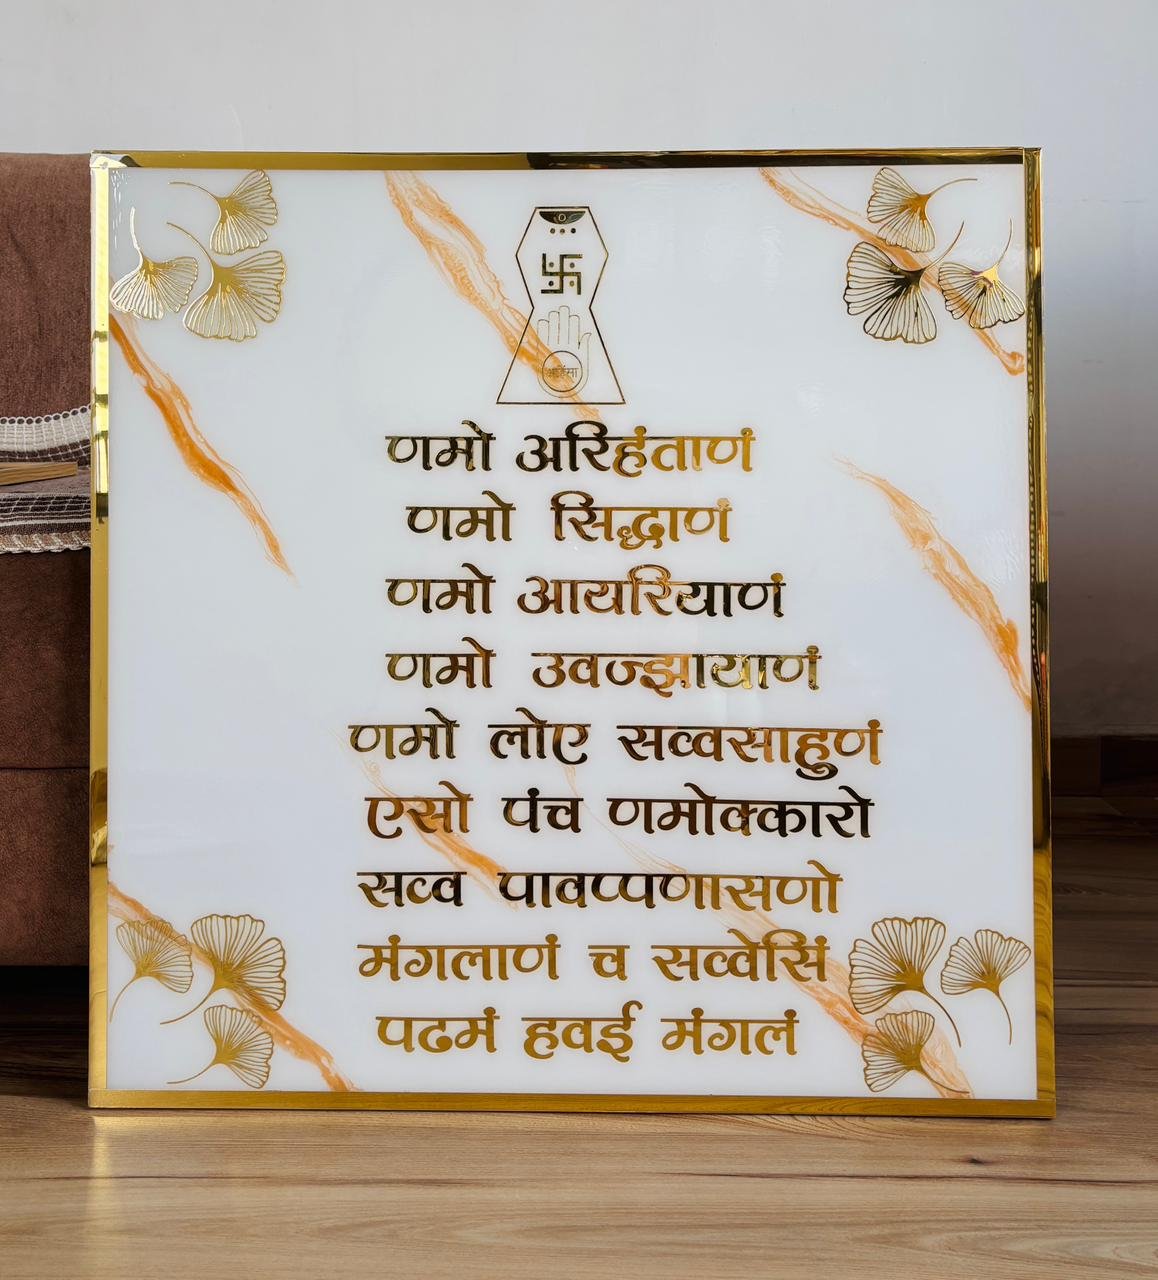 अहिंसा
णमो अरिहंताणं
णमो सिद्धाणं
णमो आयरियाणं
णमो उवज्झायाणं
णमो लोए सव्वसाहुणं
एसो पंच णमोक्कारो
सव्व पावप्पणासणो
मंगलाणं च सव्वेसिं
पढमं हवई मंगलं